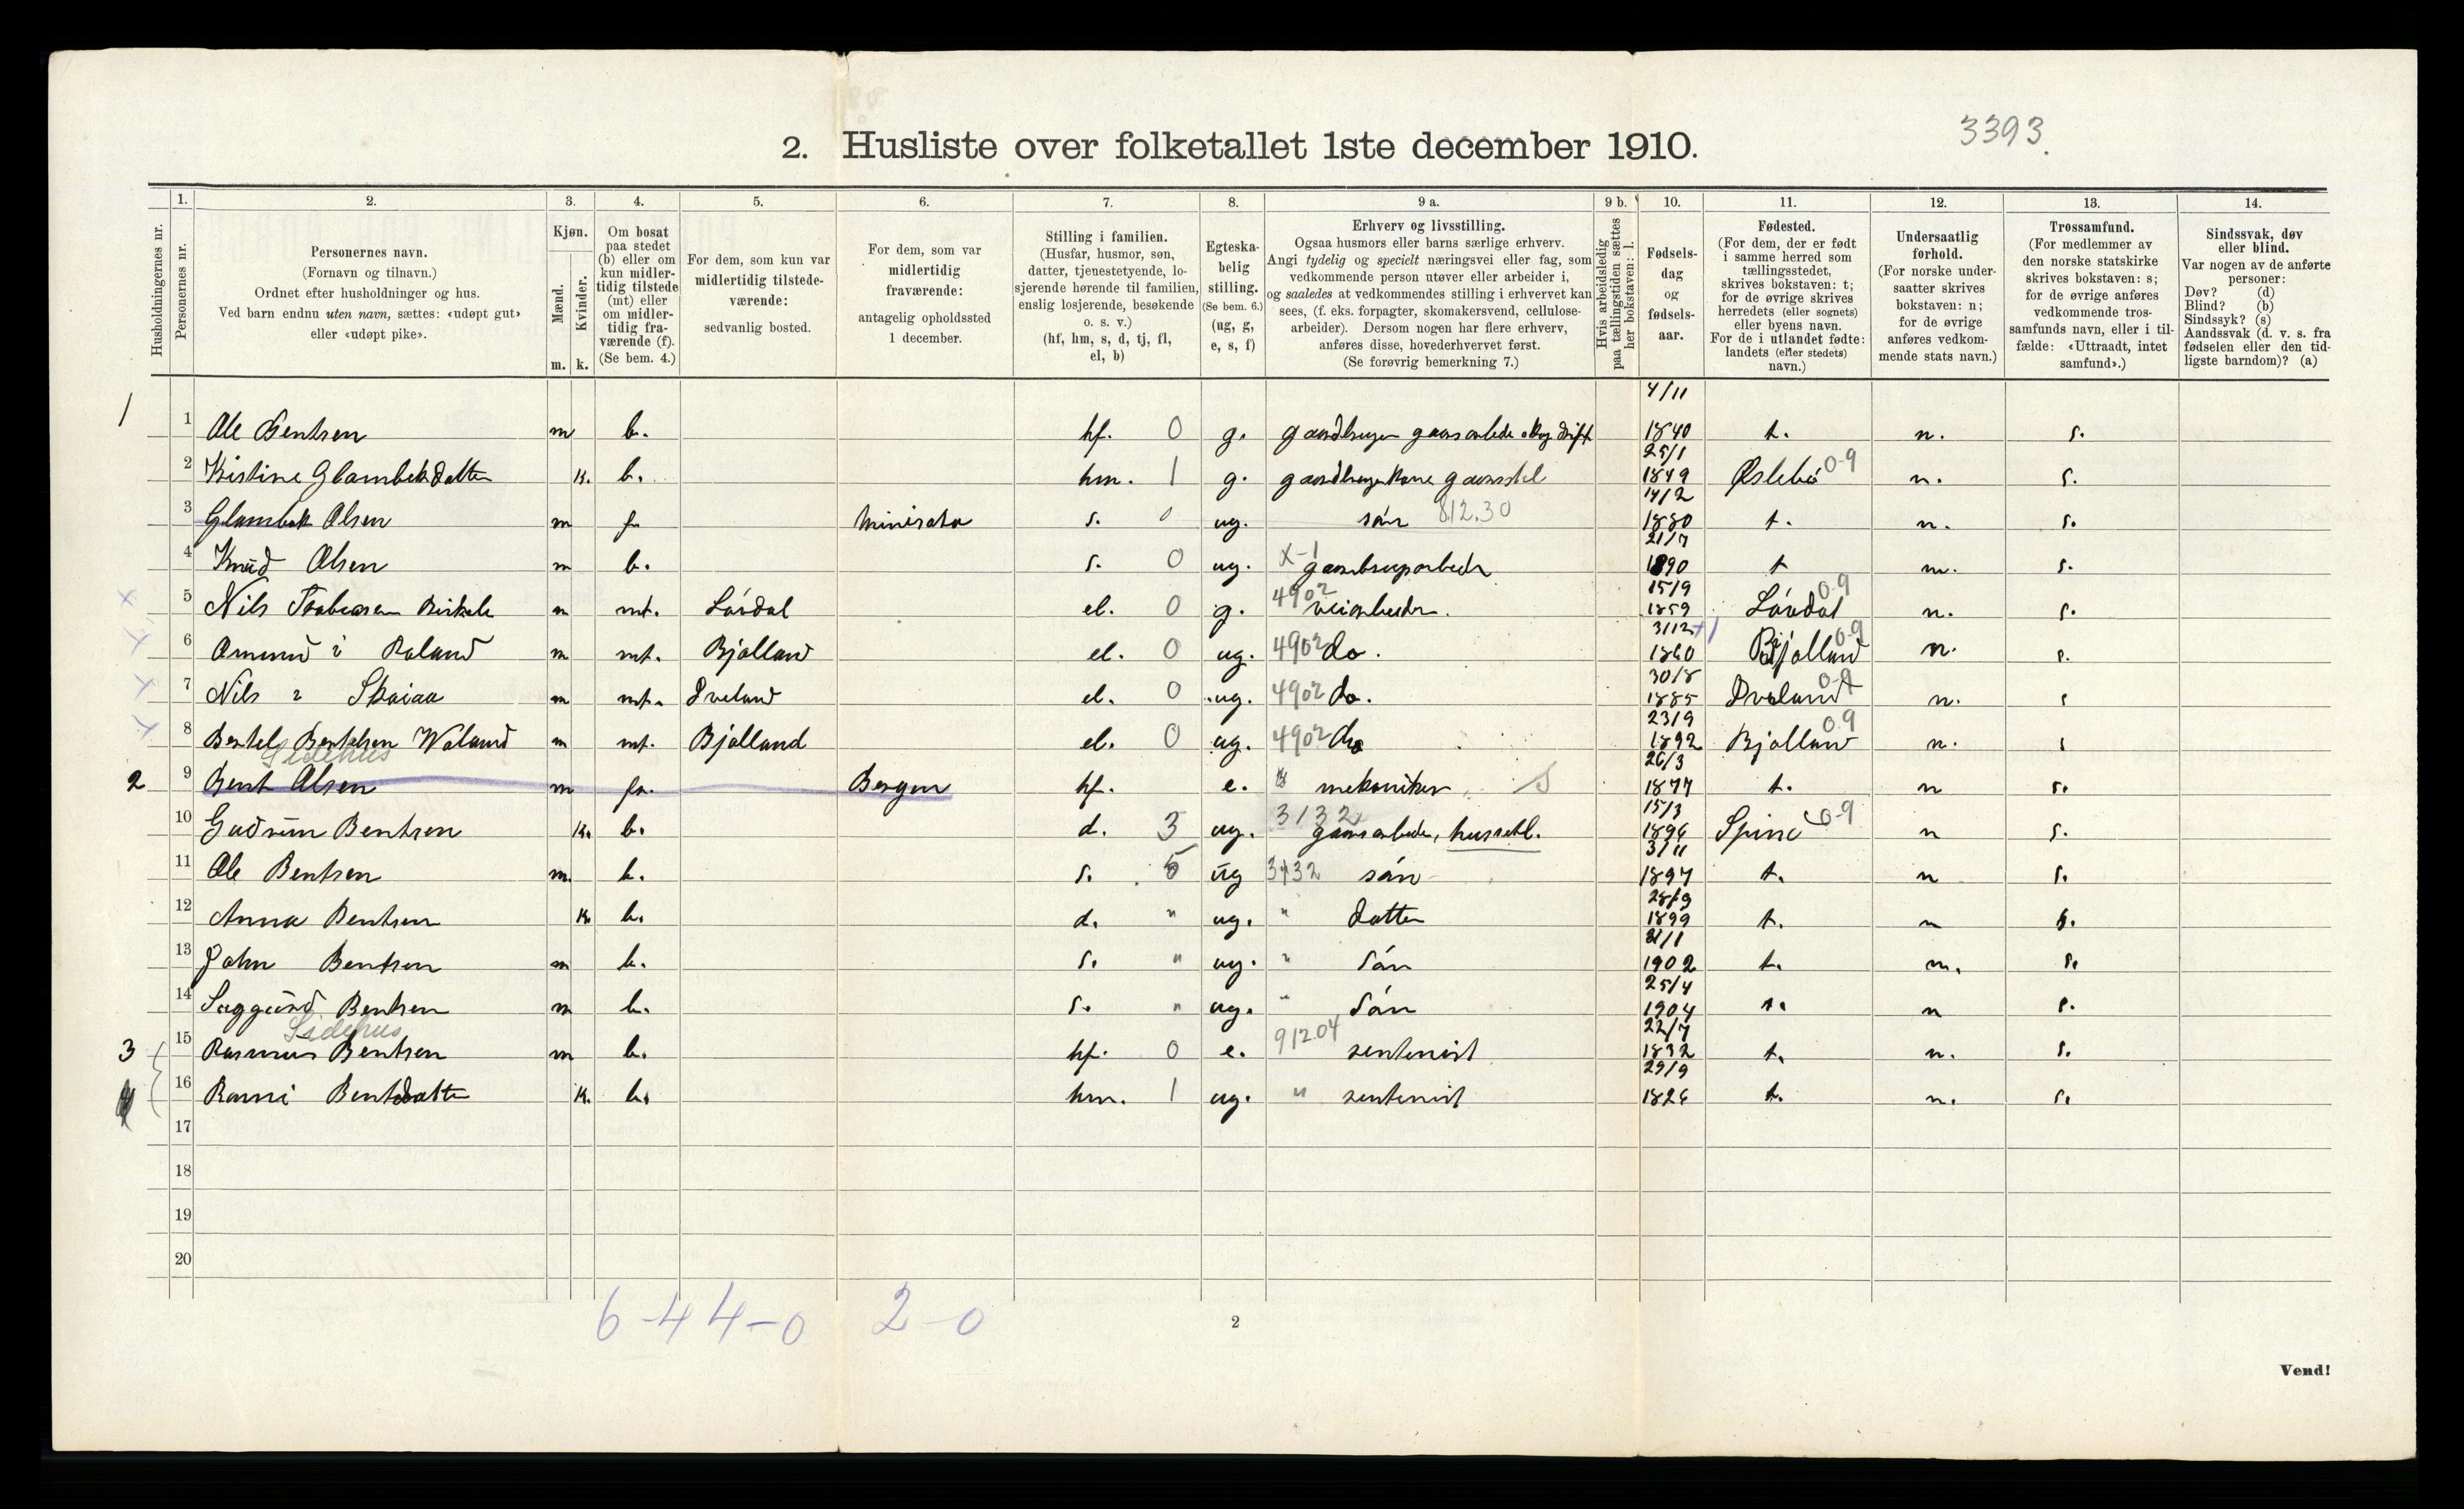 3393.
2. Husliste over folketallet 1ste december 1910.
Husholdningernes nr.
1. Personernes nr.
2. Personernes navn.
(Fornavn og tilnavn.)
Ordnet efter husholdninger og hus.
Ved barn endnu uten navn, sættes: «udøpt gut»
eller «udøpt pike».
3. Kjøn.
Mænd. Kvinder.
m. k.
4. Om bosat
paa stedet
(b) eller om
kun midler-
tidig tilstede
(mt) eller
om midler-
tidig fra-
værende (f).
(Se bem. 4.)
5. For dem, som kun var
midlertidig tilstede-
værende:
sedvanlig bosted.
6. For dem, som var
midlertidig
fraværende:
antagelig opholdssted
1 december.
7. Stilling i familien.
(Husfar, husmor, søn,
datter, tjenestetyende, lo-
sjerende hørende til familien,
enslig losjerende, besøkende
o. s. v.)
(hf, hm, s, d, tj, fl,
el, b)
8. Egteska-
belig
stilling.
(Se bem. 6.)
(ug, g,
e, s, f)
9 a. Erhverv og livsstilling.
Ogsaa husmors eller barns særlige erhverv.
Angi tydelig og specielt næringsvei eller fag, som
vedkommende person utøver eller arbeider i,
og saaledes at vedkommendes stilling i erhvervet kan
sees, (f. eks. forpagter, skomakersvend, cellulose-
arbeider). Dersom nogen har flere erhverv,
anføres disse, hovederhvervet først.
(Se forøvrig bemerkning 7.)
9 b. Hvis arbeidsledig
paa tællingstiden sættes
her bokstaven: l.
10. Fødsels-
dag
og
fødsels-
aar.
11. Fødested.
(For dem, der er født
i samme herred som
tællingsstedet,
skrives bokstaven: t;
for de øvrige skrives
herredets (eller sognets)
eller byens navn.
For de i utlandet fødte:
landets (eller stedets)
navn.)
12. Undersaatlig
forhold.
(For norske under-
saatter skrives
bokstaven: n;
for de øvrige
anføres vedkom-
mende stats navn.)
13. Trossamfund.
(For medlemmer av
den norske statskirke
skrives bokstaven: s;
for de øvrige anføres
vedkommende tros-
samfunds navn, eller i til-
fælde: «Uttraadt, intet
samfund».)
14. Sindssvak, døv
eller blind.
Var nogen av de anførte
personer:
Døv? (d)
Blind? (b)
Sindssyk? (s)
Aandssvak (d. v. s. fra
fødselen eller den tid-
ligste barndom)? (a)
1 1 Ole Bentsen m b. hf. 0 g. 4/11 1840 t. n. s.
2 Kistine k. b. hm. 1 g. 25/1 1849 Øslebö 0-9 n. s.
3 Glambek Olsen m f. s. 0 ug. sön 812.30 14/2 1880 t. n. s.
4 Knud Olsen m b. s. 0 ug. X-1 21/7 1890 t n. s.
5 Nils m mt. Lövdal el. 0 g. 4902 veiarbeider. 15/9 1859 Lövdal 0-9 n. s.
6 m mt. Bjelland el. 0 ug. 4902 do. 3/12 1860 Bjelland 0-9 n. s.
7 Nils m mt. el. 0 ug. 4902 do. 30/8 1885 0-9 n. s
8 m mt. Bjelland el. 0 ug. 4902 do 23/9 1892 Bjelland 0-9 n. s
Sidehus
2 9 Bent Olsen m f. Bergen hf. e. mekaniker S 26/3 1877 t. n s.
10 Gudrun Bentsen k. b. d. 3 ug. 3132 husstel. 15/3 1896 0-9 n s.
11 Ole Bentsen m. b. s. 5 ug 3132 sön 3/11 1897 t. n s.
12 Anna Bentsen k b. d. " ug. " datter 28/9 1899 t. n s.
13 John Bentsen m b. s. " ug. " sön 1902 t. n. s.
14 Bentsen m b. s. " ug. " sön 25/4 1904 t. n s.
Sidehus
3 15 Rasmus Bentsen m b. hf. 0 e. 91204 22/7 1832 t. n. s.
16 k. b. hm. 1 ug. " 29/9 1826 t. n. s.
17
18
19
20
6-4 4-0 2-0
2
Vend!